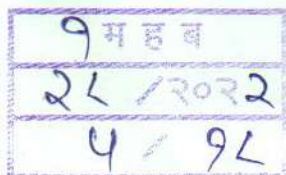 १ म ह व
२८ /२०२२
५ / १८